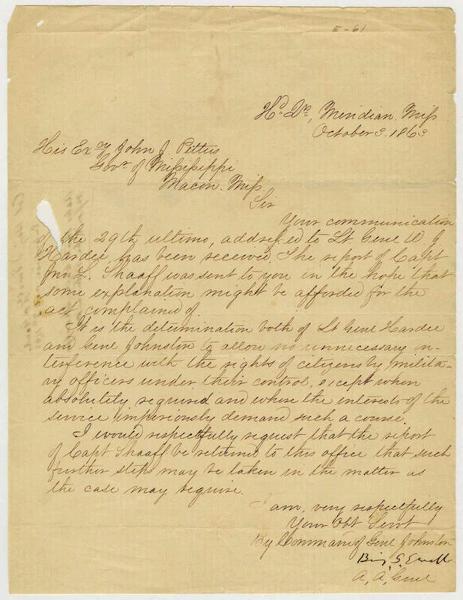 E-61
Hd. Qr, Meridian Miss
October 3. 1863
His Exy John J. Pettus
Govr of Mississippi
Macon Miss,
Sir
Your communication
the 29th ultimo, addressed to Lt Genl W J
Hardee, has been received. The report of Capt
Jno L. Shaaff was sent to you in the hope that
some explanation might be afforded for the
act complained of.
It is the determination both of Lt Genl Hardee
and Genl Johnston to allow no unnecessary in-
terference with the rights of citizens by milita-
ry officers under their control, except when
absolutely required and where the interests of the
service imperiously demand such a course.
I would respectfully request that the report
of Capt Shaaff be returned to this office that such
further steps may be taken in the matter as
the case may require.
I am, very respectfully
Your Obt Servt
By Command of Genl Johnston
Benj. S. Ewell
A. A. Genl